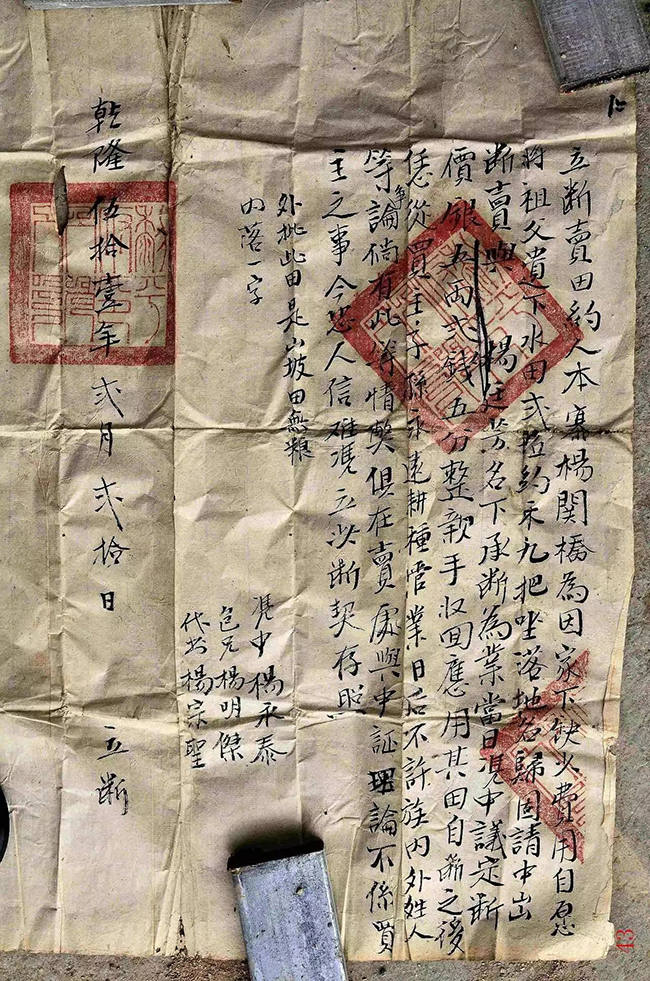 立斷賣田約人本寨楊関橋為因家下缺少費用自愿
將祖父遺下水田弍坵約禾九把坐落地名歸固請中出
斷賣與 楊廷芳名下承斷為業當日凴中議定斷
價銀五両弍錢五分整親手収囬應用其田自斷之後
恁從買主子孫永遠耕種管業日后不許族内外姓人
等爭論倘有此等情獘俱在賣處與中証理論不係買
主之事今恐人信难凴立此断契存照
外批此田是山坡田無粮
内落一字
凴中楊永泰
包兄楊明傑
代書楊宗聖
乾隆伍拾壹年弍月弍拾日 立斷
13